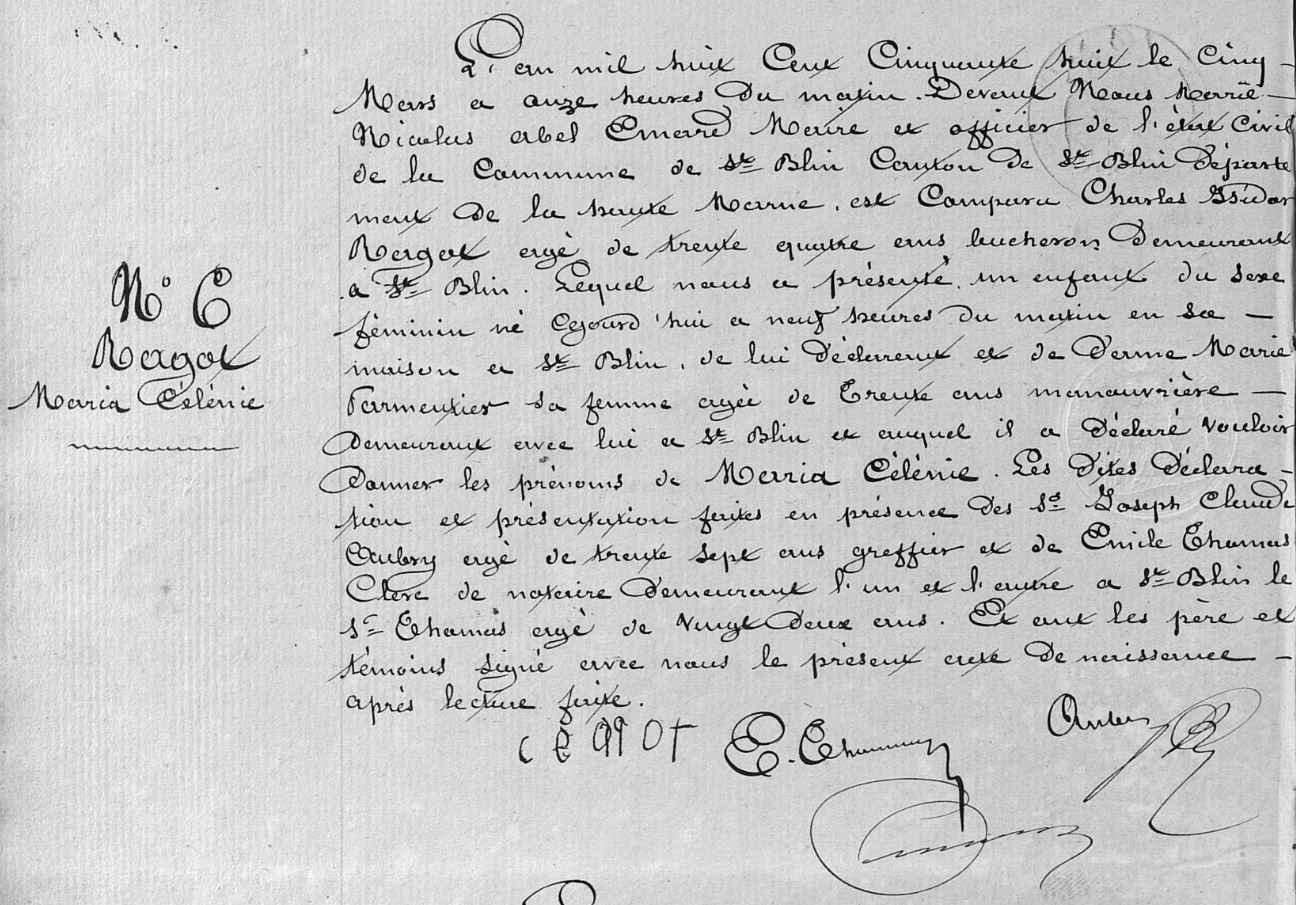 N° 6
Ragot
Maria Célénie
L'an mil huit Cent Cinquante huit le Cinq
Mars a onze heures Du matin. Devant Nous Marie
Nicolas Abel Emard Maire et officier de l'état Civil
de la Commune de St Blin Canton de St Blin Départe
ment De la haute Marne, est Comparu Charles Isidor
Ragot agé de trente quatre ans bucheron Demeurant
a St Blin. Lequel nous a présenté un enfant du Sexe
féminin né Cejourd'hui a neuf heures Du matin en Sa
maison a St Blin, de lui Déclarant et de Dame Marie
Parmentier Sa femme agée de Trente ans manouvrière
Demeurant avec lui a St Blin et auquel il a Déclaré Vouloir
Donner les prénoms de Maria Célénie. Les Dites Déclara
tion et présentation faites en présence Des Srs Joseph Claude
Aubry agé de trente Sept ans greffier et de Emile Thomas
Clerc de notaire Demeurant l'un et l'autre a St Blin le
Sr Thomas agé de Vingt Deux ans. Et ont les père et
témoins Signé avec nous le présent acte De naissance
après lecture faite.
E. Thomas